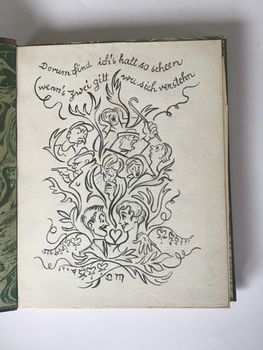 Dorum find ich's halt so scheen
wenn's zwei gitt wu sich verstehn